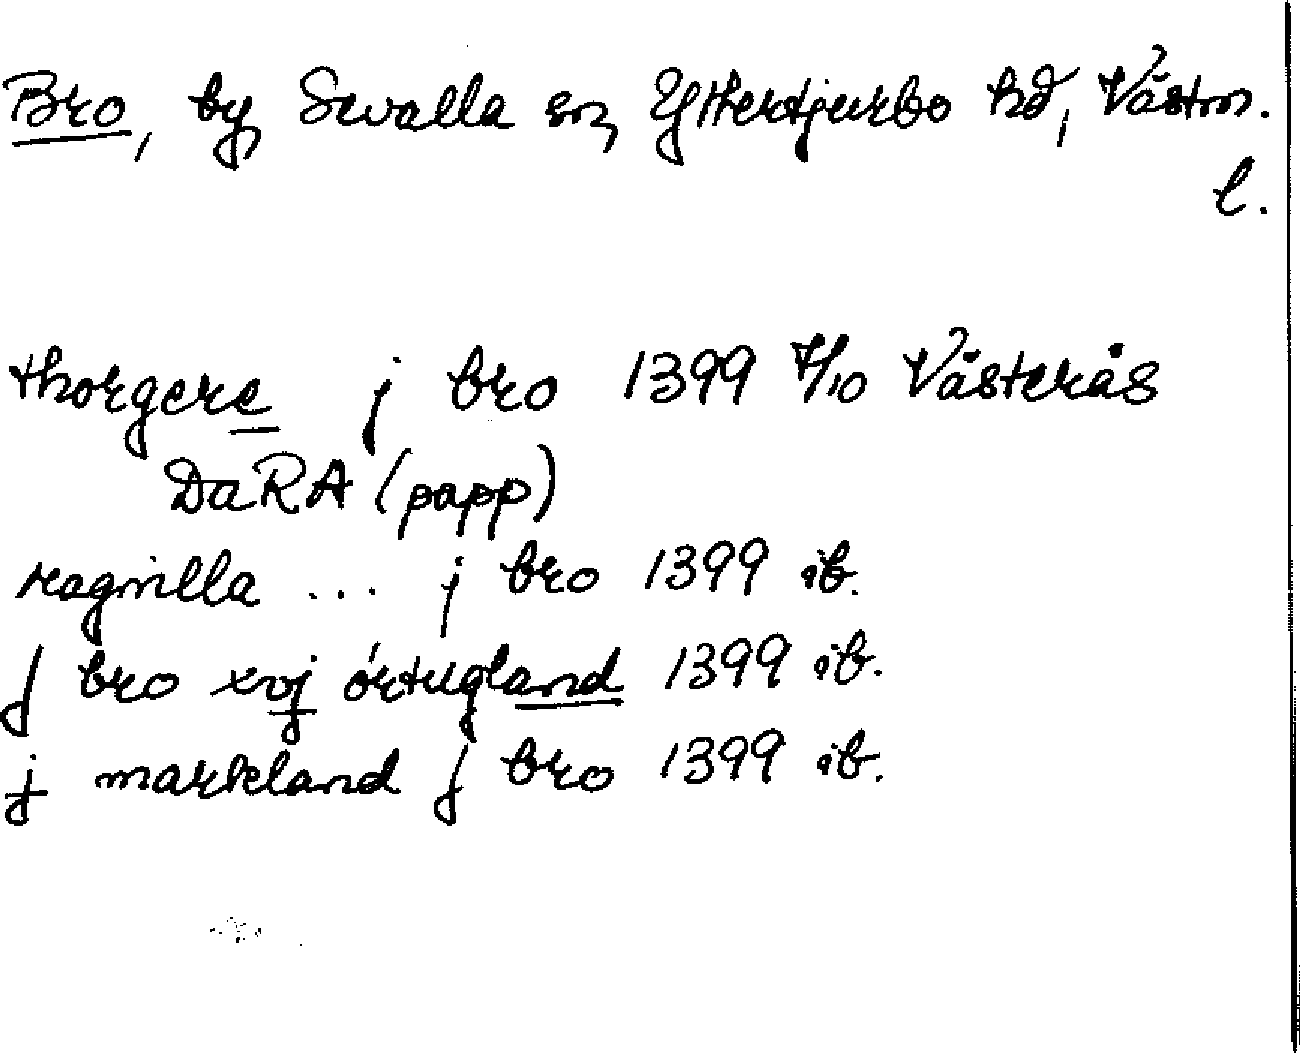 Bro, by, Sevalla sn, Yttertjurbo hd, Västm.
l.
thorgere j bro 1399 7/10 Västerås
DaRA (papp)
ragnilla ... j bro 1399 ib.
J bro xvj örtugland 1399 ib.
j markland j bro 1399 ib.